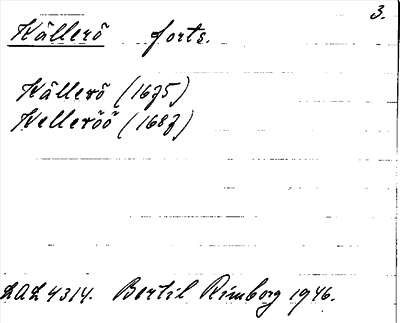 3.
Källerö forts.
Källerö (1675)
Kelleröö (1687)
LAL 4314. Bertil Rimborg 1946.